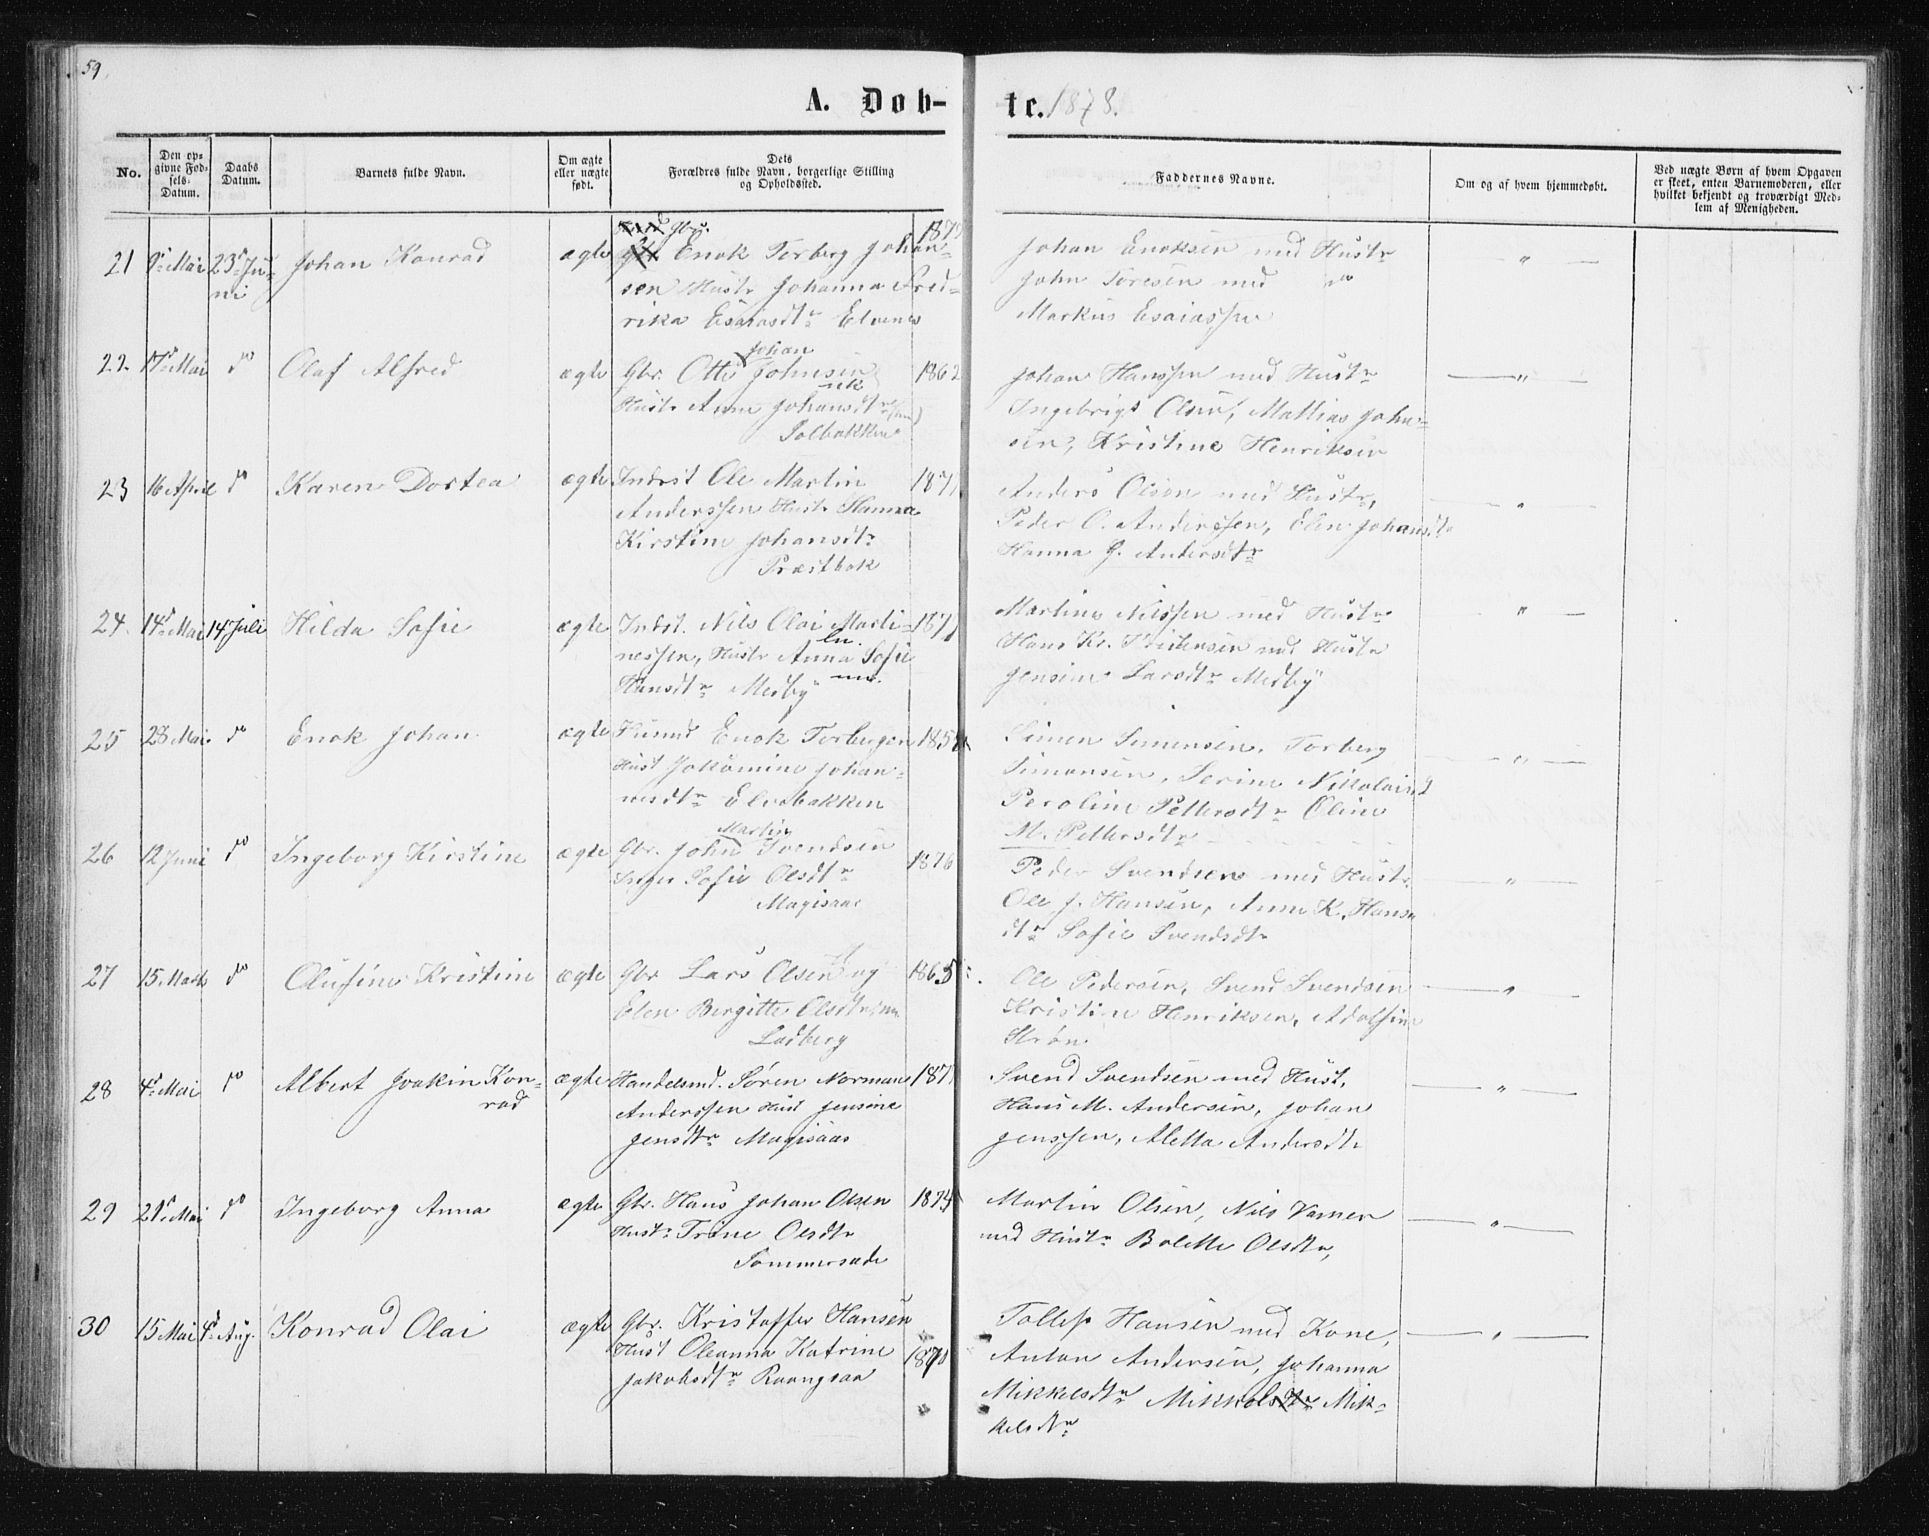 59.
A. Døb-
te. 1878.
No.
Den op-
givne Fød-
sels-
Datum.
Daabs
Datum.
Barnets fulde Navn.
Om ægte
eller uægte
født.
Dets
Forældres fulde Navn, borgerlige Stilling
og Opholdssted.
Faddernes Navne.
Om og af hvem hjemmedøbt.
Ved uægte Børn af hvem Opgaven
er skeet, enten Barnemoderen, eller
hvilket bekjendt og troværdigt Med-
lem af Menigheden.
21 9de Mai 23de Ju-
ni
Johan Konrad
ægte
Gbr.
Enok Torberg Johan-
sen Hustr Johanna Fred-
rika Esaiasdtr Elvenes
Johan Enoksen med Hustr
John Toresen med do
Markus Esaiassen
22. 17de Mai do Olaf Alfred ægte
Johan
Gbr. Otto Johnsen 1862
Hustr Anne Johansdtr
Solbakken
Johan Hanssen med Hustr
Ingebrigt Olsen, Mathias John-
sen, Kristine Henriksen
23 16 April do Karen Dortea ægte
Indrst Ole Martin 1877
Anderssen Hustr Hanna
Kirstine Johansdtr
Præstbak
Anders Olsen med Hustr,
Peder O. Anderssen, Elen Johansdtr
Hanna J. Andersdtr
24. 14de Mai 14 Juli Hilda Sofie ægte
Indst. Nils Olai Marti- 1877
nessen, Hustr Anna Sofie
Hansdtr Medby
Martinus Nilssen med Hustr
Hans Kr. Pedersen med Hustr
Jensine Larsdtr Medby
25 28 Mai do Enok Johan ægte
Huusmd Enok Torbergen 185
Hust Jakomine Johan-
nesdtr Elvebakken
Simon Simonsen, Torberg
Simonsen, Serine Nikolaisd
Peroline Pettersdtr Oline
M. Pettersdtr
26 12 Juni do Ingeborg Kirstine ægte
Martin
Gbr. John Svendsen 1876
Inger Sofie Olsdtr
Magisaas
Peder Svendsen med Hustr
Ole J. Hansen, Anne K. Hans
dtr Sofie Svendsdtr
27 15. Marts do Olufine Kristine ægte
Gbr Lars Olsen og 1865
Elen Birgitte Olsdtr
Ladberg
Ole Pedersen, Svend Svendsen
Kristine Henriksen, Adolfine
Strøm
28 4de Mai do Albert Joakin Kon-
rad
ægte
Handelsmd. Søren Norman 1877
Anderssen Hust Jensine
Jensdtr Magisaas
Svend Svendsen med Hust,
Hans M. Andersen, Johan
Jenssen, Aletta Andersdtr
29 21de Mai do Ingeborg Anna ægte
Gbr. Hans Johan Olsen 1874
Hustr Trine Olsdtr
Sommersade
Martin Olsen, Nils
med Hustr Bolette Olsdtr,
30 15 Mai 4de Aug. Konrad Olai ægte
Gbr. Kristoffer Hansen
Hust Oleanna Katrine
Jakobsdtr 1870
Tollef Hansen med Kone,
Anton Andersen, Johanna
Mikkelsdtr Mikkelsdtr Mik-
kelsdtr